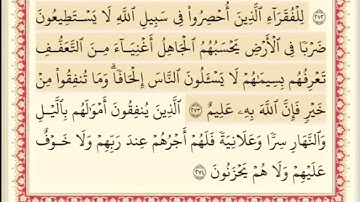 ٢٧٢ لِلْفُقَرَآءِ ٱلَّذِينَ أُحْصِرُوا۟ فِى سَبِيلِ ٱللَّهِ لَا يَسْتَطِيعُونَ
ضَرْبًا فِى ٱلْأَرْضِ يَحْسَبُهُمُ ٱلْجَاهِلُ أَغْنِيَآءَ مِنَ ٱلتَّعَفُّفِ
تَعْرِفُهُم بِسِيمَـٰهُمْ لَا يَسْـَٔلُونَ ٱلنَّاسَ إِلْحَافًا ۗ وَمَا تُنفِقُوا۟ مِنْ
خَيْرٍ فَإِنَّ ٱللَّهَ بِهِۦ عَلِيمٌ ٢٧٣ ٱلَّذِينَ يُنفِقُونَ أَمْوَٰلَهُم بِٱلَّيْلِ
وَٱلنَّهَارِ سِرًّا وَعَلَانِيَةً فَلَهُمْ أَجْرُهُمْ عِندَ رَبِّهِمْ وَلَا خَوْفٌ
عَلَيْهِمْ وَلَا هُمْ يَحْزَنُونَ ٢٧٤